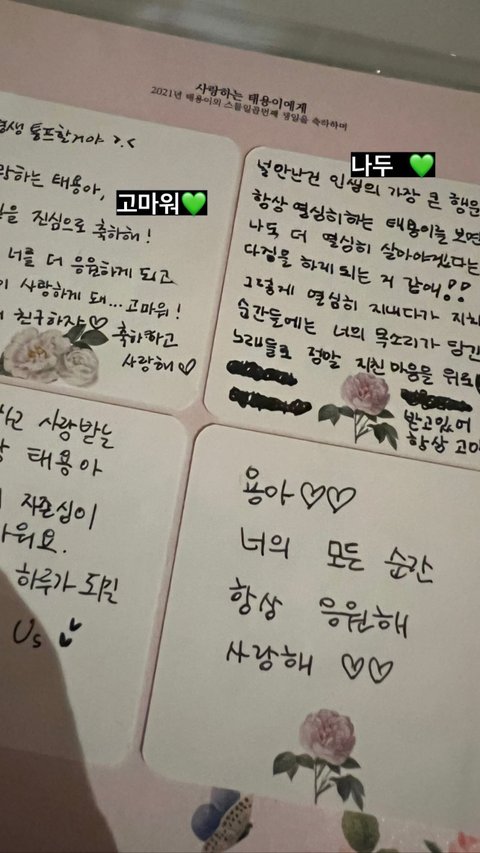 사랑하는 태용이에게
2021년 태용이의 스물일곱번째 생일을 축하하며
통프할거야 >.<
랑하는 태용아,
고마워💚
을 진심으로 축하해!
너를 더 응원하게 되고
이 사랑하게 돼...고마워!
친구하자♡ 축하하고
사랑해♡
나두 💚
널만난건 인생의 가장 큰 행운
항상 열심히하는 태용이를 보면
나도 더 열심히 살아야겠다는
다짐을 하게되는 거 같애!!
그렇게 열심히 지내다가 지치
순간들에는 너의 목소리가 담긴
노래들로 정말 지친마음을 위로
받고있어
항상 고마
사랑받는
태용아
자존심이
워요.
하루가 되면
Us
용아♡♡
너의 모든 순간
항상 응원해
사랑해 ♡♡